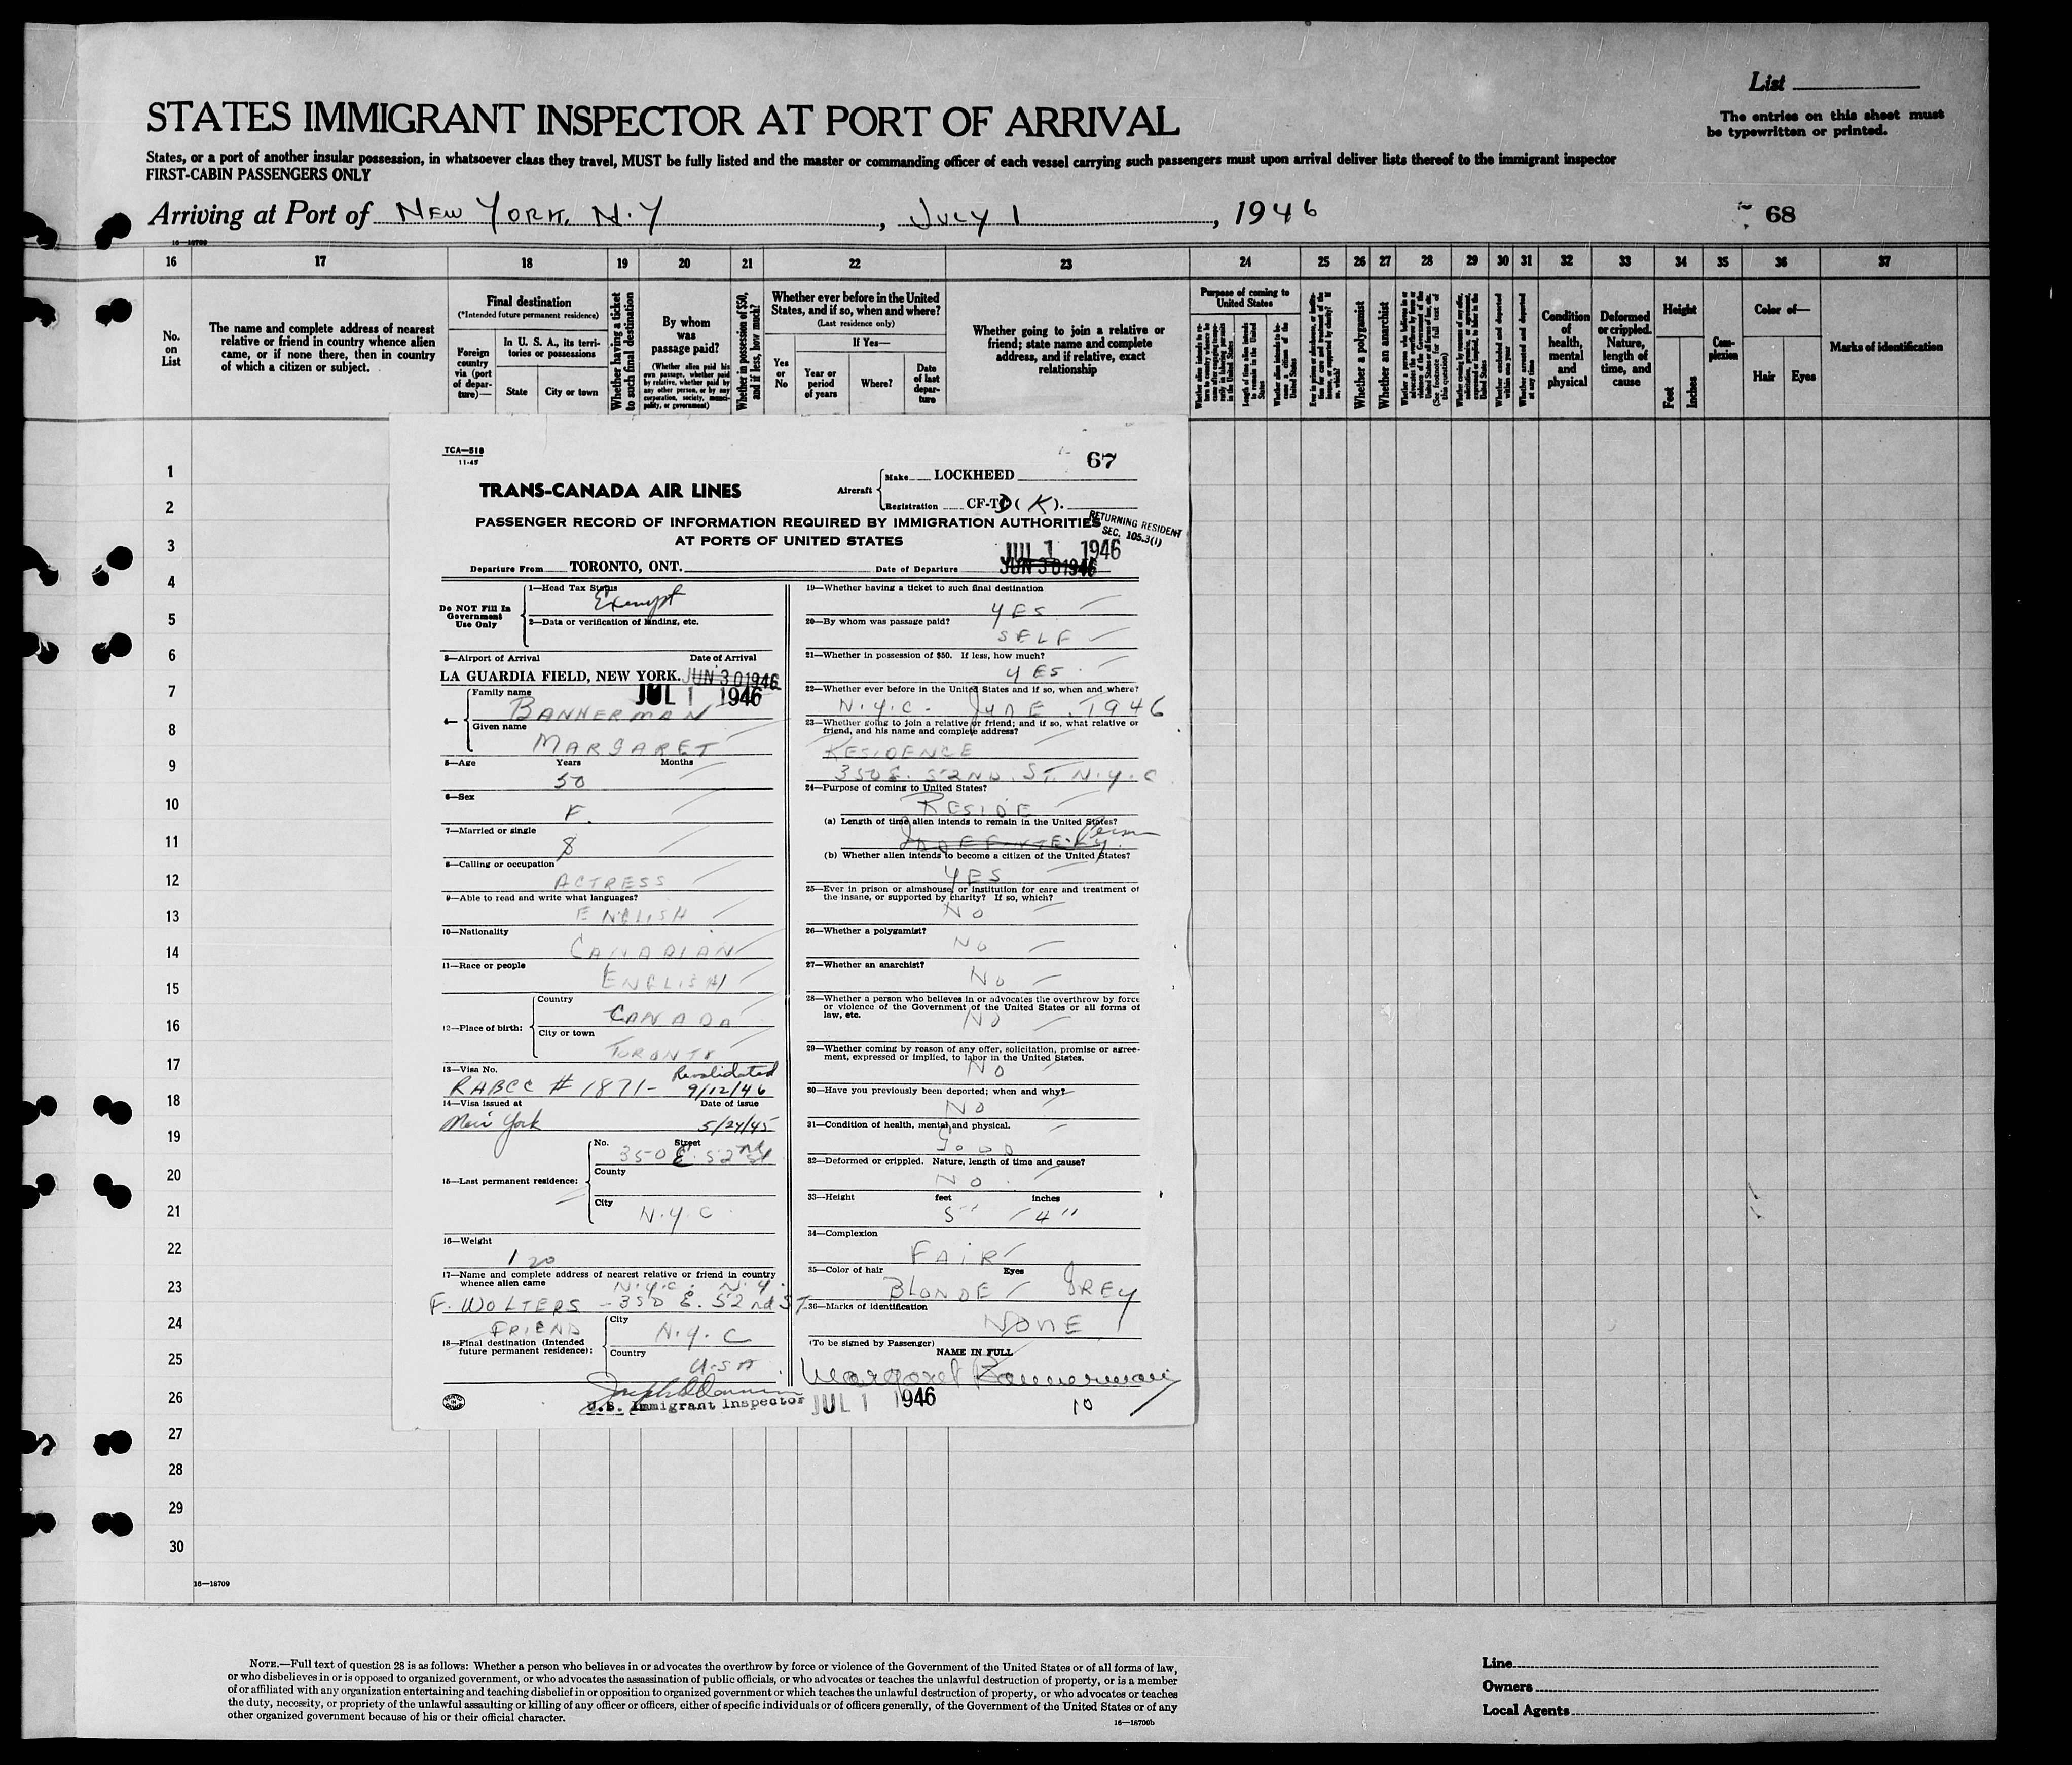 List
STATES IMMIGRANT INSPECTOR AT PORT OF ARRIVAL
The entries on this sheet must
be typewritten or printed.
States, or a port of another insular possession, in whatsoever class they travel, MUST be fully listed and the master or commanding officer of each vessel carrying such passengers must upon arrival deliver lists thereof to the immigrant inspector
FIRST-CABIN PASSENGERS ONLY
Arriving at Port of NEW YORK, N.Y, JULY 1, 1946
68
16—18709
16 17 18 19 20 21 22 23 24 25 26 27 28 29 30 31 32 33 34 35 36 37
No. on List
The name and complete address of nearest relative or friend in country whence alien came, or if none there, then in country of which a citizen or subject.
Final destination
(*Intended future permanent residence)
Foreign country via (port of departure)—
In U. S. A., its territories or possessions
State
City or town
Whether having a ticket to such final destination
By whom was passage paid?
(Whether alien paid his own passage, whether paid by relative, whether paid by any other person, or by any corporation, society, municipality, or government)
Whether in possession of $50, and if less, how much?
Whether ever before in the United States, and if so, when and where?
(Last residence only)
Yes or No
If Yes—
Year or period of years
Where?
Date of last departure
Whether going to join a relative or friend; state name and complete address, and if relative, exact relationship
Purpose of coming to United States
Length of time alien intends to remain in the United States
Whether alien intends to become a citizen of the United States
Whether a polygamist
Whether an anarchist
Whether arrested and deported at any time
Condition of health, mental and physical
Deformed or crippled. Nature, length of time, and cause
Height
Feet
Inches
Complexion
Color of—
Hair
Eyes
Marks of identification
1
2
3
4
5
6
7
8
9
10
11
12
13
14
15
16
17
18
19
20
21
22
23
24
25
26
27
28
29
30
TCA—518
11-45
67
TRANS-CANADA AIR LINES
Aircraft
Make LOCKHEED
Registration CF-T (K).
PASSENGER RECORD OF INFORMATION REQUIRED BY IMMIGRATION AUTHORITIES
AT PORTS OF UNITED STATES
RETURNING RESIDENT
SEC. 105.3(1)
JUL 1 1946
Departure From TORONTO, ONT. Date of Departure JUN 30 1946
Do NOT Fill In
Government
Use Only
1—Head Tax Status
Exempt
2—Data or verification of landing, etc.
3—Airport of Arrival Date of Arrival
LA GUARDIA FIELD, NEW YORK. JUN 30 1946
JUL 1 1946
4—
Family name
BANNERMAN
Given name
MARGARET
5—Age Years Months
50
6—Sex
F.
7—Married or single
S
8—Calling or occupation
ACTRESS
9—Able to read and write what languages?
ENGLISH
10—Nationality
CANADIAN
11—Race or people
ENGLISH
12—Place of birth:
Country
CANADA
City or town
TORONTO
13—Visa No.
Revalidated
RABCC # 1871- 9/12/46
14—Visa issued at Date of issue
New York 5/24/45
15—Last permanent residence:
No. Street
350 E. 52nd St
County
City
N.Y.C.
16—Weight
120
17—Name and complete address of nearest relative or friend in country
whence alien came
N.Y.C. N.Y.
F. WOLTERS - 350 E. 52nd ST.
FRIEND
18—Final destination (Intended
future permanent residence):
City
N.Y.C
Country
USA
U.S. Immigrant Inspector
19—Whether having a ticket to such final destination
YES
20—By whom was passage paid?
SELF
21—Whether in possession of $50. If less, how much?
YES
22—Whether ever before in the United States and if so, when and where?
N.Y.C. JUNE, 1946
23—Whether going to join a relative or friend; and if so, what relative or
friend, and his name and complete address?
RESIDENCE
350 E. 52ND. ST. N.Y.C
24—Purpose of coming to United States?
RESIDE
(a) Length of time alien intends to remain in the United States?
Perm
(b) Whether alien intends to become a citizen of the United States?
YES
25—Ever in prison or almshouse, or institution for care and treatment of
the insane, or supported by charity? If so, which?
NO
26—Whether a polygamist?
NO
27—Whether an anarchist?
NO
28—Whether a person who believes in or advocates the overthrow by force
or violence of the Government of the United States or all forms of
law, etc.
NO
29—Whether coming by reason of any offer, solicitation, promise or agree-
ment, expressed or implied, to labor in the United States.
NO
30—Have you previously been deported; when and why?
NO
31—Condition of health, mental and physical.
GOOD
32—Deformed or crippled. Nature, length of time and cause?
NO
33—Height feet inches
5" 4"
34—Complexion
FAIR
35—Color of hair Eyes
BLONDE GREY
36—Marks of identification
NONE
(To be signed by Passenger)
NAME IN FULL
Margaret Bannerman
JUL 1 1946
10
16—18709
NOTE.—Full text of question 28 is as follows: Whether a person who believes in or advocates the overthrow by force or violence of the Government of the United States or of all forms of law,
or who disbelieves in or is opposed to organized government, or who advocates the assassination of public officials, or who advocates or teaches the unlawful destruction of property, or is a member
of or affiliated with any organization entertaining and teaching disbelief in or opposition to organized government or which teaches the unlawful destruction of property, or who advocates or teaches
the duty, necessity, or propriety of the unlawful assaulting or killing of any officer or officers, either of specific individuals or of officers generally, of the Government of the United States or of any
other organized government because of his or their official character.
16—18709b
Line
Owners
Local Agents